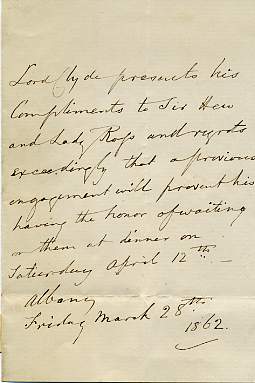 Lord Clyde presents his
Compliments to Sir Hew
and Lady Ross and regrets
exceedingly that a previous
engagement will prevent his
having the honor of waiting
on them at dinner on
Saturday April 12th. —
Albany
Friday March 28th
1862.